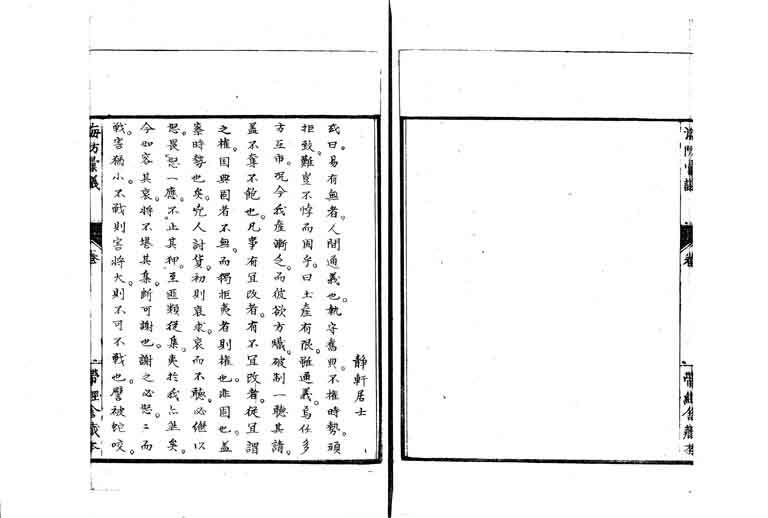 靜軒居士
或曰。易有無者。人間通義也。執守舊典。不權時勢。頑
拒致難。豈不悖而固乎。曰土產有限。雖通義。烏任多
方互市。況今我產漸乏。而彼欲方熾。破制一聽其請。
蓋不奪不飽也。凡事有宜改者。有不宜改者。從宜謂
之權。固與固者不無。而獨拒夷者則權也。非固也。蓋
察時勢也矣。兇人討貨。初則哀求。哀而不聽。必繼以
怒。畏怒一應。不止其狎。至匪類從集。夷於我亦然矣。
今如容其哀。將不堪其集。斷可謝也。謝之必怒。怒而
戰害猶小。不戰則害將大。則不可不戰也。譬被蛇咬。
海防彙議
卷
帶經舍藏本